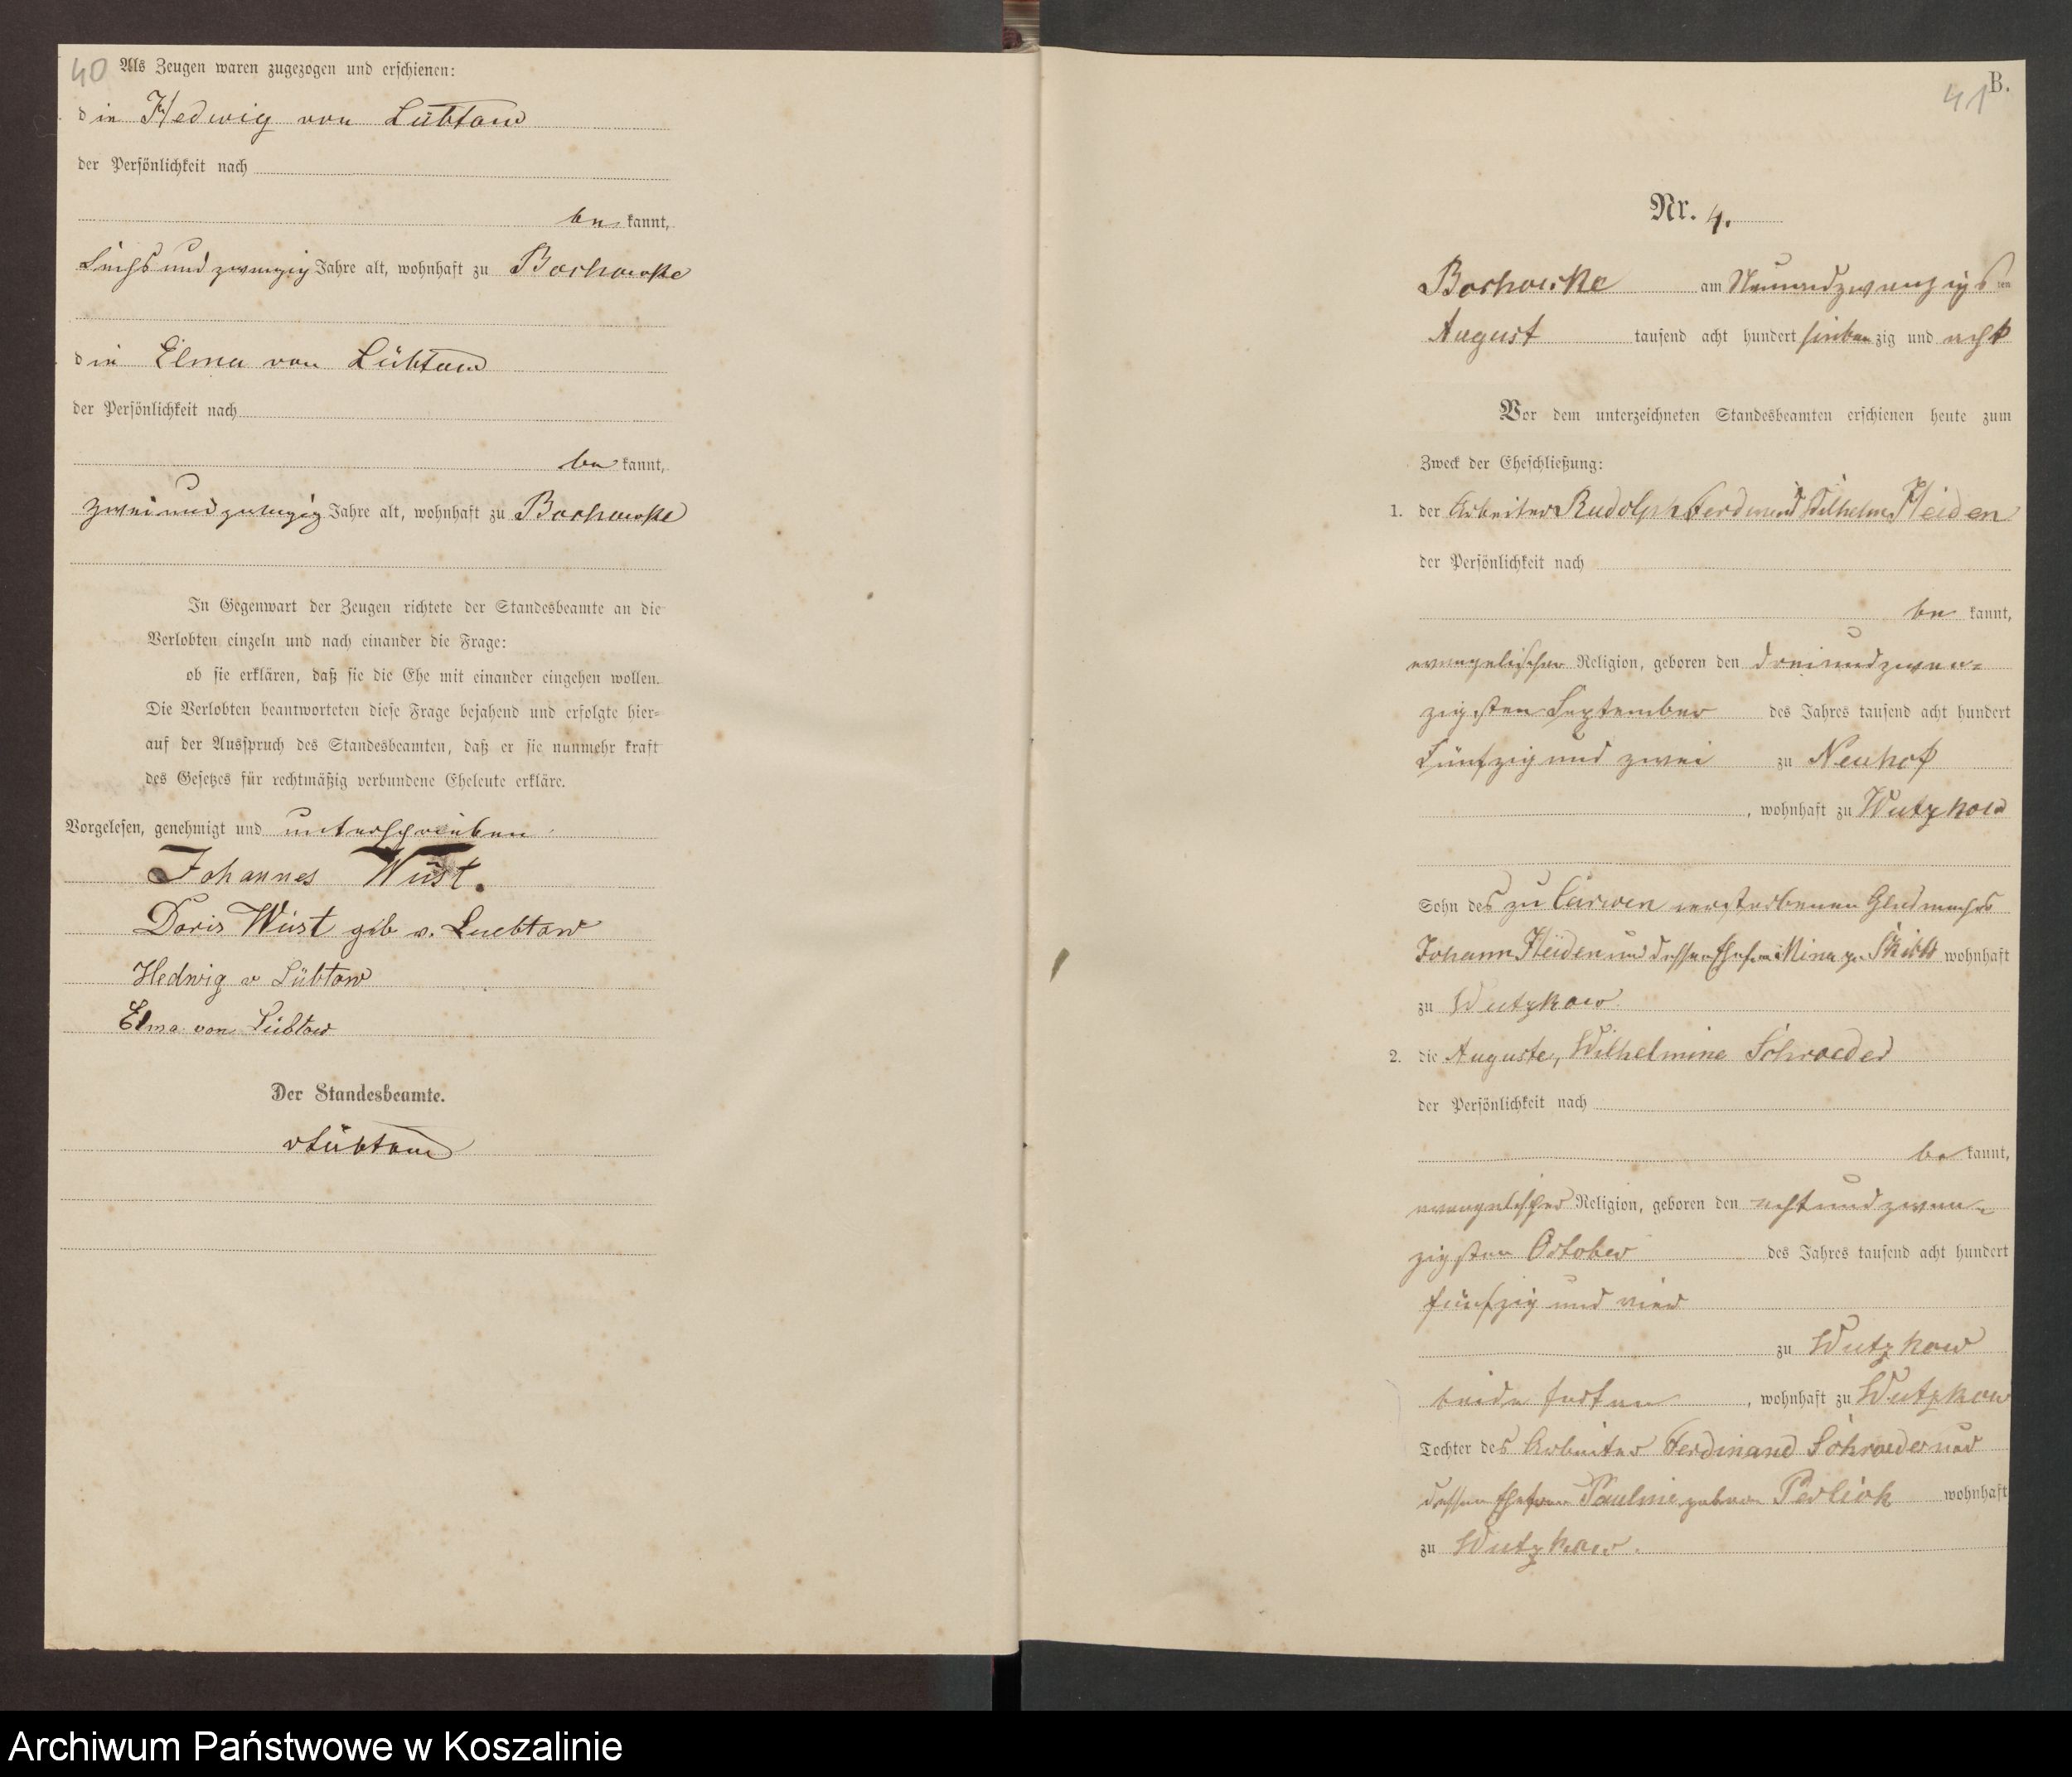 40
Als Zeugen waren zugezogen und erschienen:
die Hedwig von Lübtow
der Persönlichkeit nach
be kannt,
Sechs und zwanzig Jahre alt, wohnhaft zu Bochowke
die Elma von Lübtow
der Persönlichkeit nach
be kannt,
zwei und zwanzig Jahre alt, wohnhaft zu Bochowke
In Gegenwart der Zeugen richtete der Standesbeamte an die
Verlobten einzeln und nach einander die Frage:
ob sie erklären, daß sie die Ehe mit einander eingehen wollen.
Die Verlobten beantworteten diese Frage bejahend und erfolgte hier=
auf der Ausspruch des Standesbeamten, daß er sie nunmehr kraft
des Gesetzes für rechtmäßig verbundene Eheleute erkläre.
Vorgelesen, genehmigt und unterschrieben.
Johannes Wüst.
Doris Wüst geb v. Luebtow
Hedwig v Lübtow
Elma von Lübtow
Der Standesbeamte.
vLübtow
41
B.
Nr. 4.
Bochowke am Neunundzwanzigsten
August tausend acht hundert siebenzig und acht
Vor dem unterzeichneten Standesbeamten erschienen heute zum
Zweck der Eheschließung:
1. der Arbeiter Rudolph Ferdinand Wilhelm Heiden
der Persönlichkeit nach
be kannt,
evangelischer Religion, geboren den dreiundzwan=
zigsten September des Jahres tausend acht hundert
Fünfzig und zwei zu Neuhof
, wohnhaft zu Wutzkow
Sohn des zu verstorbenen
Johann Heiden und dessen Ehefrau Mina wohnhaft
zu Wutzkow
2. die Auguste, Wilhelmine Schroeder
der Persönlichkeit nach
be kannt,
evangelischer Religion, geboren den achtundzwan=
zigsten October des Jahres tausend acht hundert
fünfzig und vier
zu Wutzkow
, wohnhaft zu Wutzkow
Tochter des Arbeiter Ferdinand Schroeder und
dessen Ehefrau Pauline geboren Perlick wohnhaft
zu Wutzkow.
Archiwum Państwowe w Koszalinie